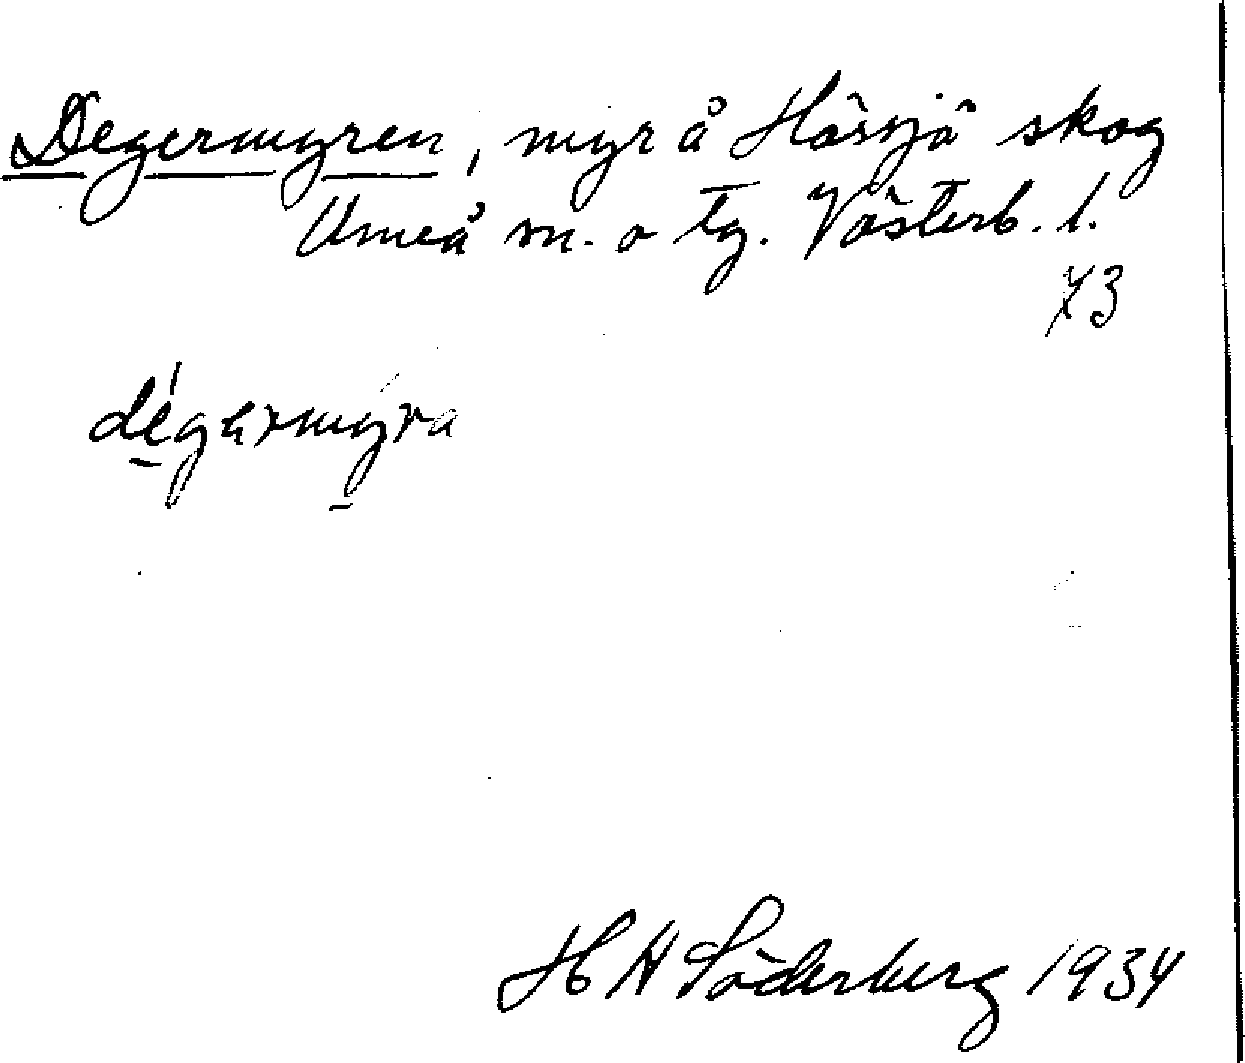 Degermyren, myr å Hössjö skog
Umeå sn. o tg. Västerb. l.
73
degermyra
H A Söderberg 1934